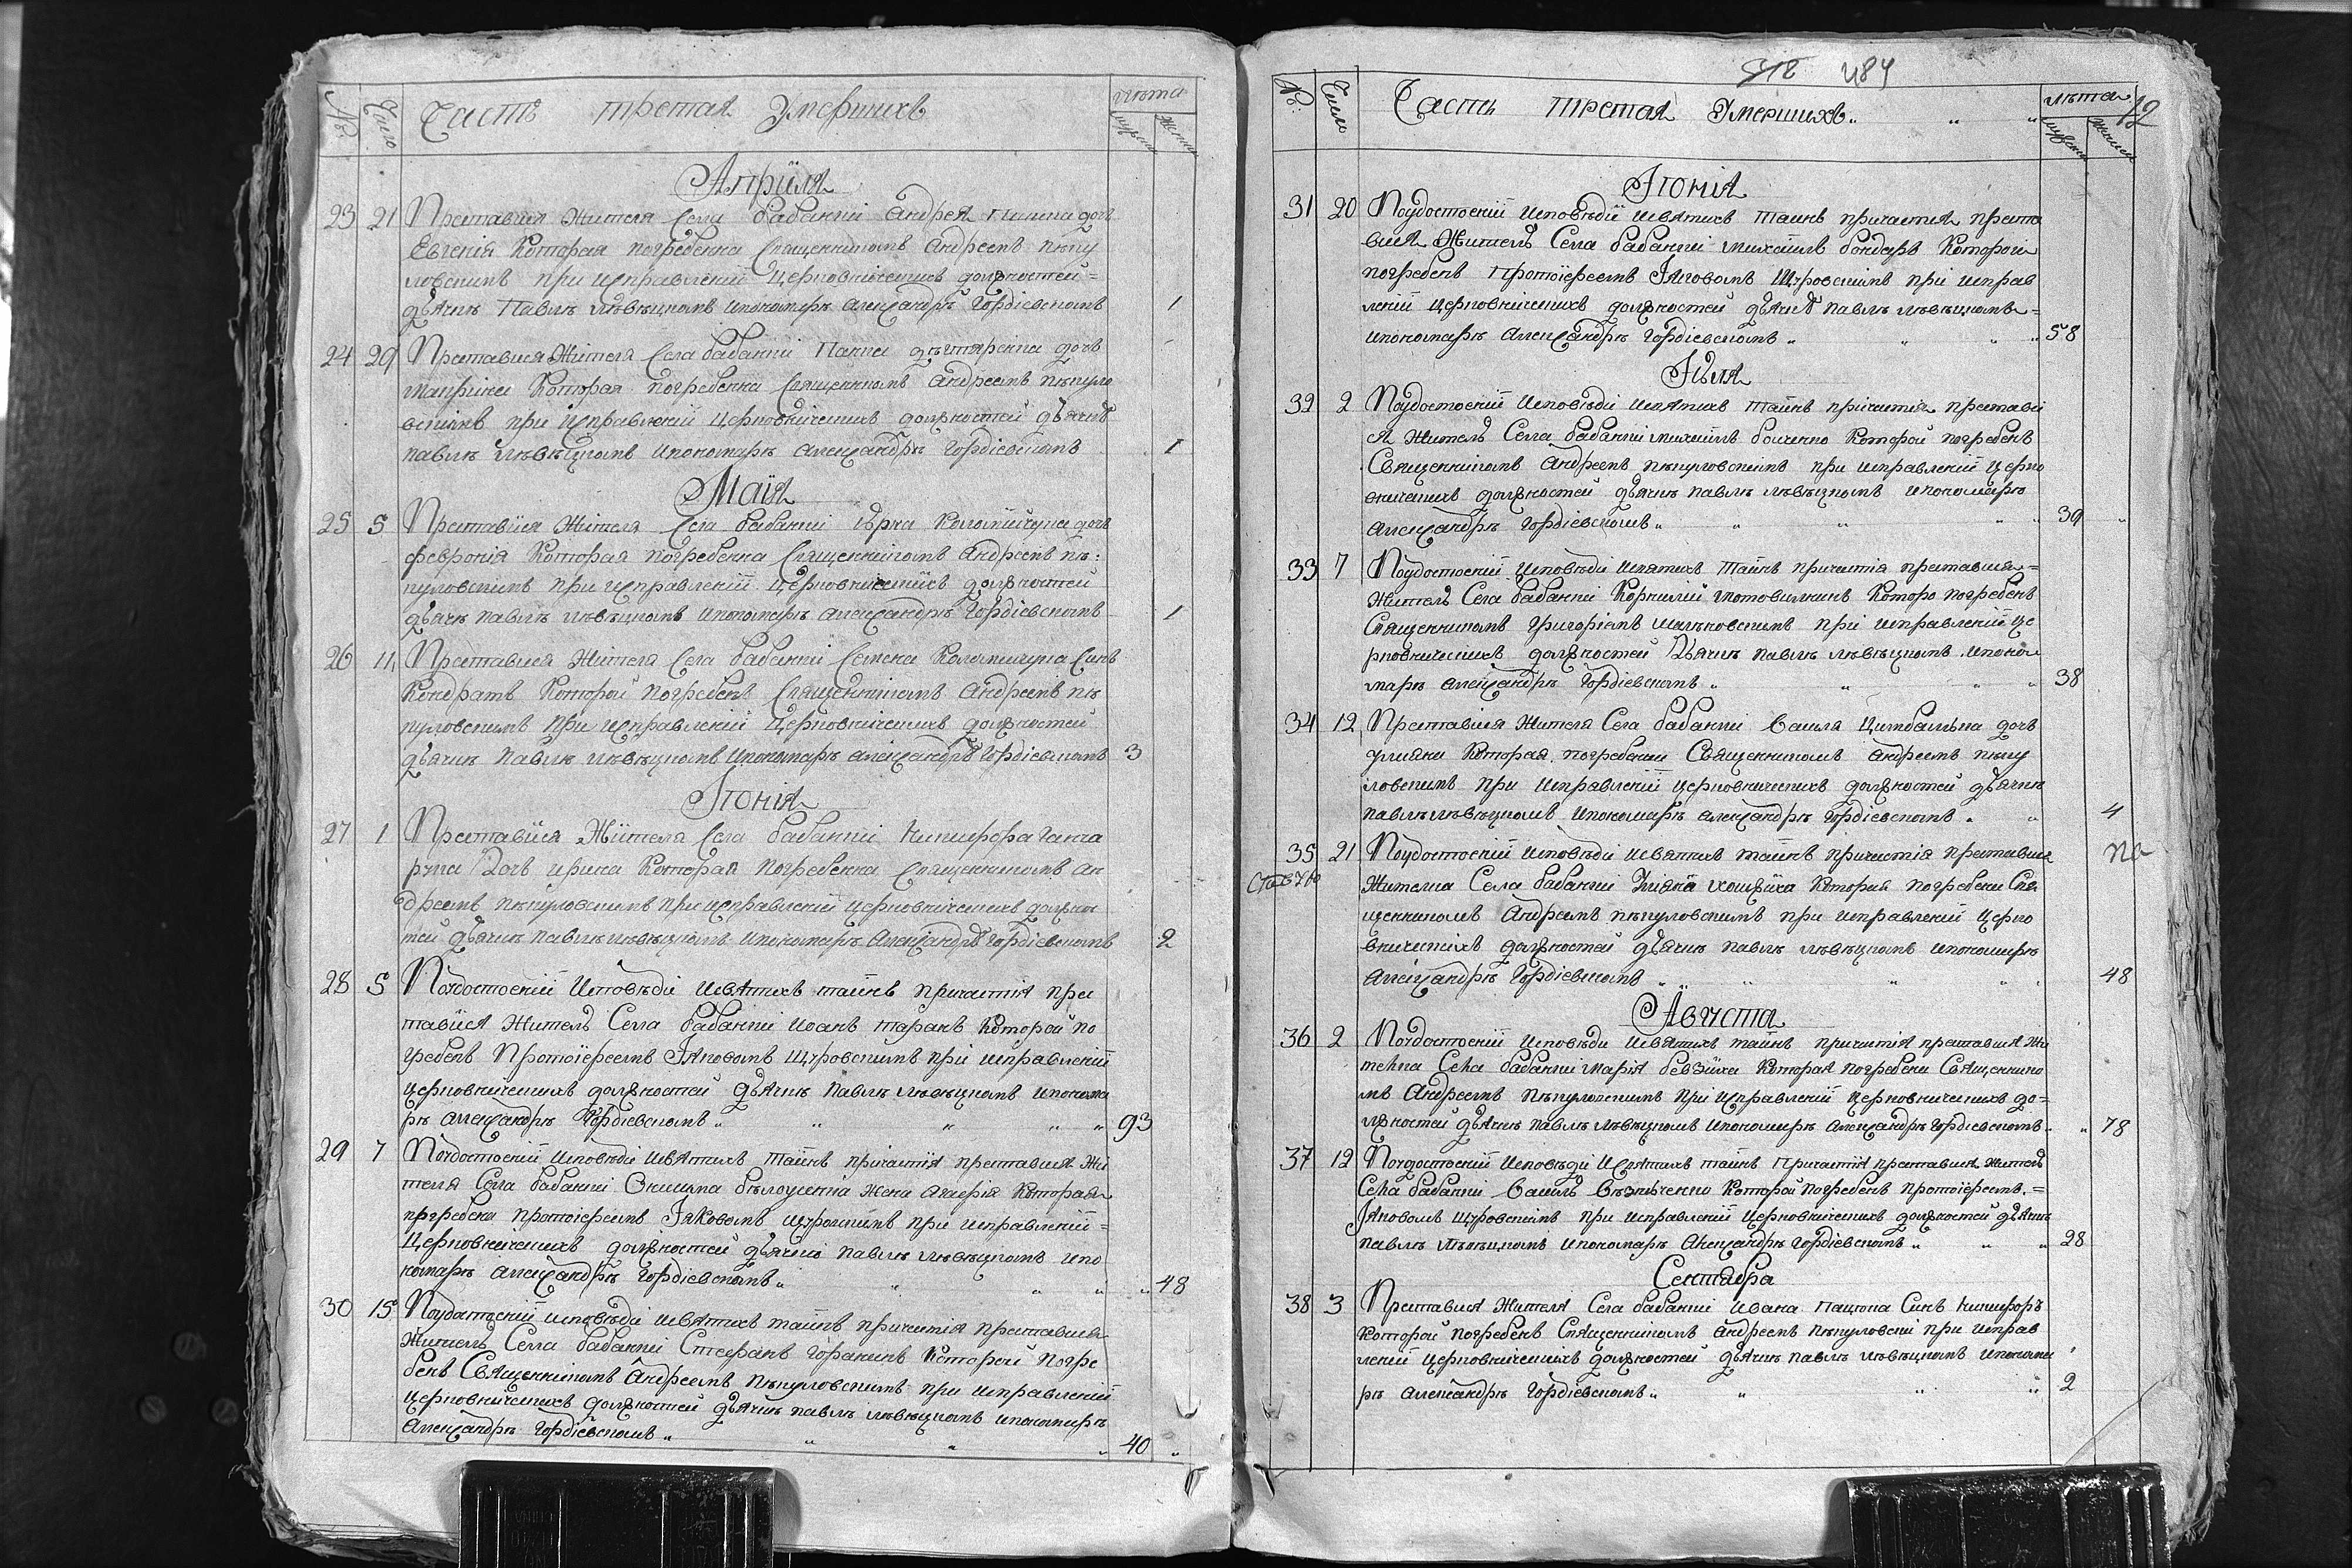 № Число Часть третая Умершихъ лѣта
мужеска женска
Априля
23 21 Преставися жителя Села бабанки андрея дочь
Евгенія Которая погребенна Священникомъ Андреемъ пѣку
ловскимъ при исправленіи Церковническихъ должностей =
дьячкѣ Павлѣ лѣвѣцкомъ ипономарѣ александрѣ Гордіевскомъ 1
24 29 Преставися Жителя Села бабанки дочь
Которая погребенна Священникомъ Андреемъ пѣкуло
вскимъ при исправленіи Церковническихъ должностей дьячкѣ
павлѣ лѣвѣцкомъ ипономарѣ александрѣ Гордіевскомъ 1
Маія
25 5 Преставися жителя Села бабанки дочь
февронія Которая погребенна Священникомъ Андреемъ пѣ:
куловскимъ при исправленіи Церковническихъ должностей
дьячкѣ павлѣ лѣвѣцкомъ ипономарѣ александрѣ Гордіевскомъ 1
26 11 Преставися Жителя Села бабанки Семена Синъ
Кондратъ Которой погребенъ Священникомъ Андреемъ пѣ
куловскимъ при исправленіи Церковническихъ должностей
дьячкѣ павлѣ лѣвѣцкомъ ипономарѣ александрѣ Гордіевскомъ 3
Іюнія
27 1 Преставися Жителя Села бабанки никифора ганча
рука Дочь ирина Которая погребенна Священникомъ Ан
дреемъ пѣкуловскимъ при исправленіи церковническихъ должнос
тей дьячкѣ павлѣ лѣвѣцкомъ ипономарѣ Александрѣ Гордіевскомъ 2
28 5 Поудостоеніи Исповѣди исвятихъ таинъ причастія пре
тавися Жителъ Села бабанки иоанъ таранъ Которой по
гребенъ Протоіереемъ Іяковомъ Щуровскимъ при исправленіи
церковническихъ должностей дьячкѣ павлѣ лѣвѣцкомъ ипонома
рѣ александрѣ Гордіевскомъ „ „ „ „ „ 93
29 7 Поудостоеніи исповѣди исвятихъ таинъ причастія преставися Жи
теля Села бабанки жена Которая
погребена протоіереемъ Іяковомъ при исправленіи =
Церковническихъ должностей дьячкѣ павлѣ лѣвѣцкомъ ипо
номарѣ александрѣ Гордіевскомъ „ „ „ „ „ 48
30 15 Поудостоеніи исповѣди исвятихъ таинъ причастія преставися
Жителъ Села бабанки Стефанъ Которой погре
бенъ Священникомъ Андреемъ пѣкуловскимъ при исправленіи
церковническихъ должностей дьячкѣ павлѣ лѣвѣцкомъ ипономарѣ
Александрѣ Гордіевскомъ „ „ „ „ 40 „
484
№ Число Часть третая Умершихъ „ „ „ лѣта 12
мужеска женска
Іюнія
31 20 Поудостоеніи исповѣди исвятихъ таинъ причастія преста
вися Жителъ Села бабанки михаилъ бондаръ Которой
погребенъ Протоіереемъ Іяковомъ Щуровскимъ при исправ
леніи церковническихъ должностей дьячкѣ павлѣ лѣвѣцкомъ =
ипономарѣ александрѣ Гордіевскомъ „ „ „ „ 58
Іюля
32 2 Поудостоеніи исповѣди исвятихъ таинъ причастія преставі
ся Жителъ Села бабанки михаилъ Которой погребенъ
Священникомъ Андреемъ пѣкуловскимъ при исправленіи церко
вническихъ должностей дьячкѣ павлѣ лѣвѣцкомъ ипономарѣ
александрѣ Гордіевскомъ „ „ „ „ „ 39 „
33 7 Поудостоеніи исповѣди исвятихъ таинъ причастія преставися =
Жителъ Села бабанки Корнилій Которо погребенъ
Священникомъ Григоріемъ при исправленіи це
рковническихъ должностей Дьячкѣ павлѣ лѣвѣцкомъ ипоно
марѣ александрѣ Гордіевскомъ „ „ „ „ 38
34 12 Преставися жителя Села бабанки Василя Цимбалѣка дочь
улияна Которая погребенна Священникомъ Андреемъ пѣку
ловскимъ при исправленіи церковническихъ должностей дьячкѣ
павлѣ лѣвѣцкомъ ипономарѣ александрѣ Гордіевскомъ „ „ 4
35 21 Поудостоеніи исповѣди исвятихъ таинъ причастія преставися
Жителка Села бабанки Которая погребена Свя
щенникомъ Андреемъ пѣкуловскимъ при исправленіи Церко
вническихъ должностей дьячкѣ павлѣ лѣвѣцкомъ ипономарѣ
александрѣ Гордіевскомъ „ „ „ „ „ 48
Августа
36 2 Поудостоеніи исповѣди исвятихъ таинъ причастія преставися Жи
телка Села бабанки марія Которая погребена Священнико
мъ Андреемъ пѣкуловскимъ при исправленіи церковническихъ до=
лжностей дьячкѣ павлѣ лѣвѣцкомъ ипономарѣ александрѣ Гордіевскомъ „ „ 78
37 12 Поудостоеніи исповѣди исвятихъ таинъ причастія преставися жителъ
Села бабанки Василъ Которой погребенъ протоіереемъ =
Іяковомъ Щуровскимъ при исправленіи Церковническихъ должностей дьячкѣ
павлѣ лѣвѣцкомъ ипономарѣ Александрѣ Гордіевскомъ „ „ „ 28
Сентября
38 3 Преставися Жителя Села бабанки ивана Синъ никифоръ
Которой погребенъ Священникомъ Андреемъ пѣкуловскі при исправ
леніи церковническихъ должностей дьячкѣ павлѣ лѣвѣцкомъ ипонома
рѣ александрѣ Гордіевскомъ „ „ „ „ 2